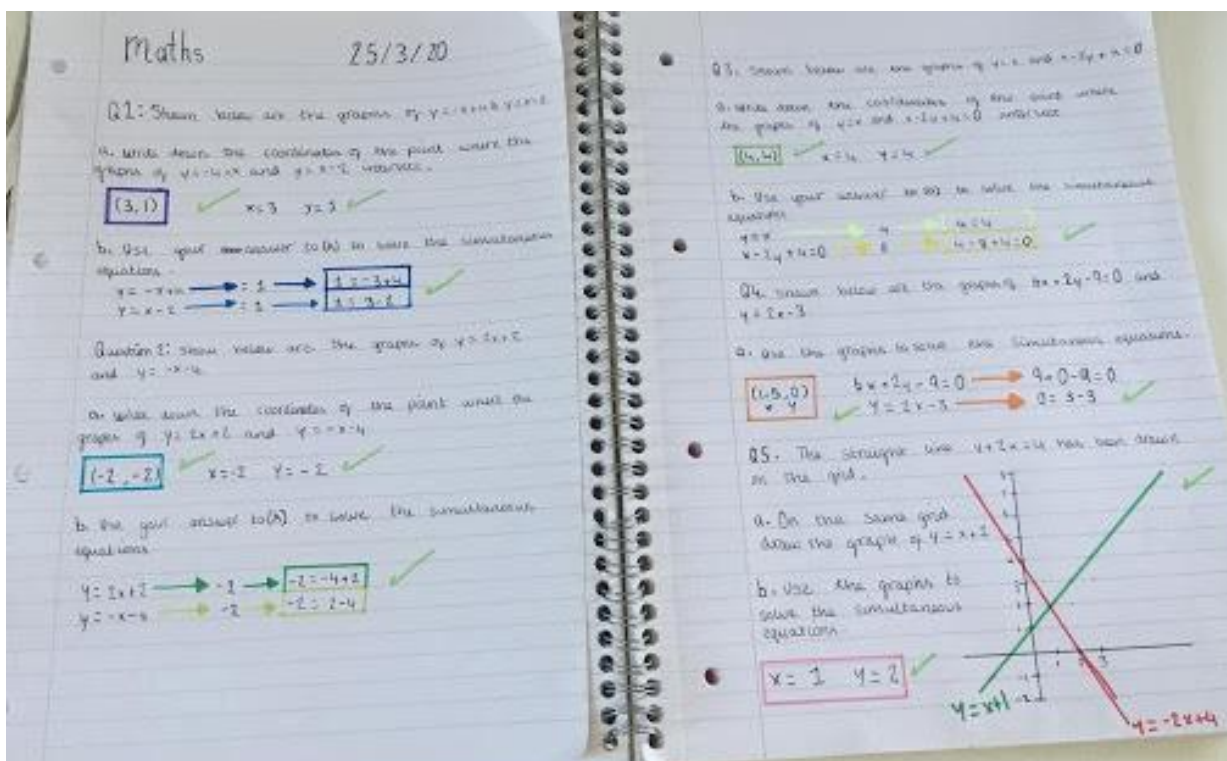 Maths 25/3/20
Q1: Shown below are the graphs of y=-x+4 & y=x-2
a. Write down the coordinates of the point where the
graphs of y=-4+x and y=x-2 intersect.
(3,1) x=3
b. Use your answer to (A) to solve the simultaneous
equations.
y=-x+4 = 1 1=-3+4
y=x-2 = 1 1=3-2
Question 2: Shown below are the graphs of y=2x+2
and y=-x-4
a. Write down the coordinates of the point where the
graphs of y=2x+2 and y=-x-4
(-2,-2) x=-2 y=-2
b. Use your answer to (A) to solve the simultaneous
equations
y=2x+2 -2 -2=-4+2
y=-x-4 -2 -2=2-4
Q3. Shown below are the graphs of y=x and x-2y+4=0
a. Write down the coordinates of the point where
the graphs of y=x and x-2y+4=0 intersect
(4,4) x=4 y=4
b. Use your answer to (A) to solve the simultaneous
equations
y=x 4 4=4
x-2y+4=0 4-8+4=0
Q4. Shown below are the graphs of 6x+2y-9=0 and
y=2x-3
a. Use the graphs to solve the simultaneous equations.
(1.5,0) 6x+2y-9=0 9+0-9=0
x y y=2x-3 0=3-3
Q5. The straight line y+2x=4 has been drawn
on the grid.
a. On the same grid
draw the graph of y=x+1
b. Use the graphs to
solve the simultaneous
equations.
x=1 y=2
y=x+1
y=-2x+4